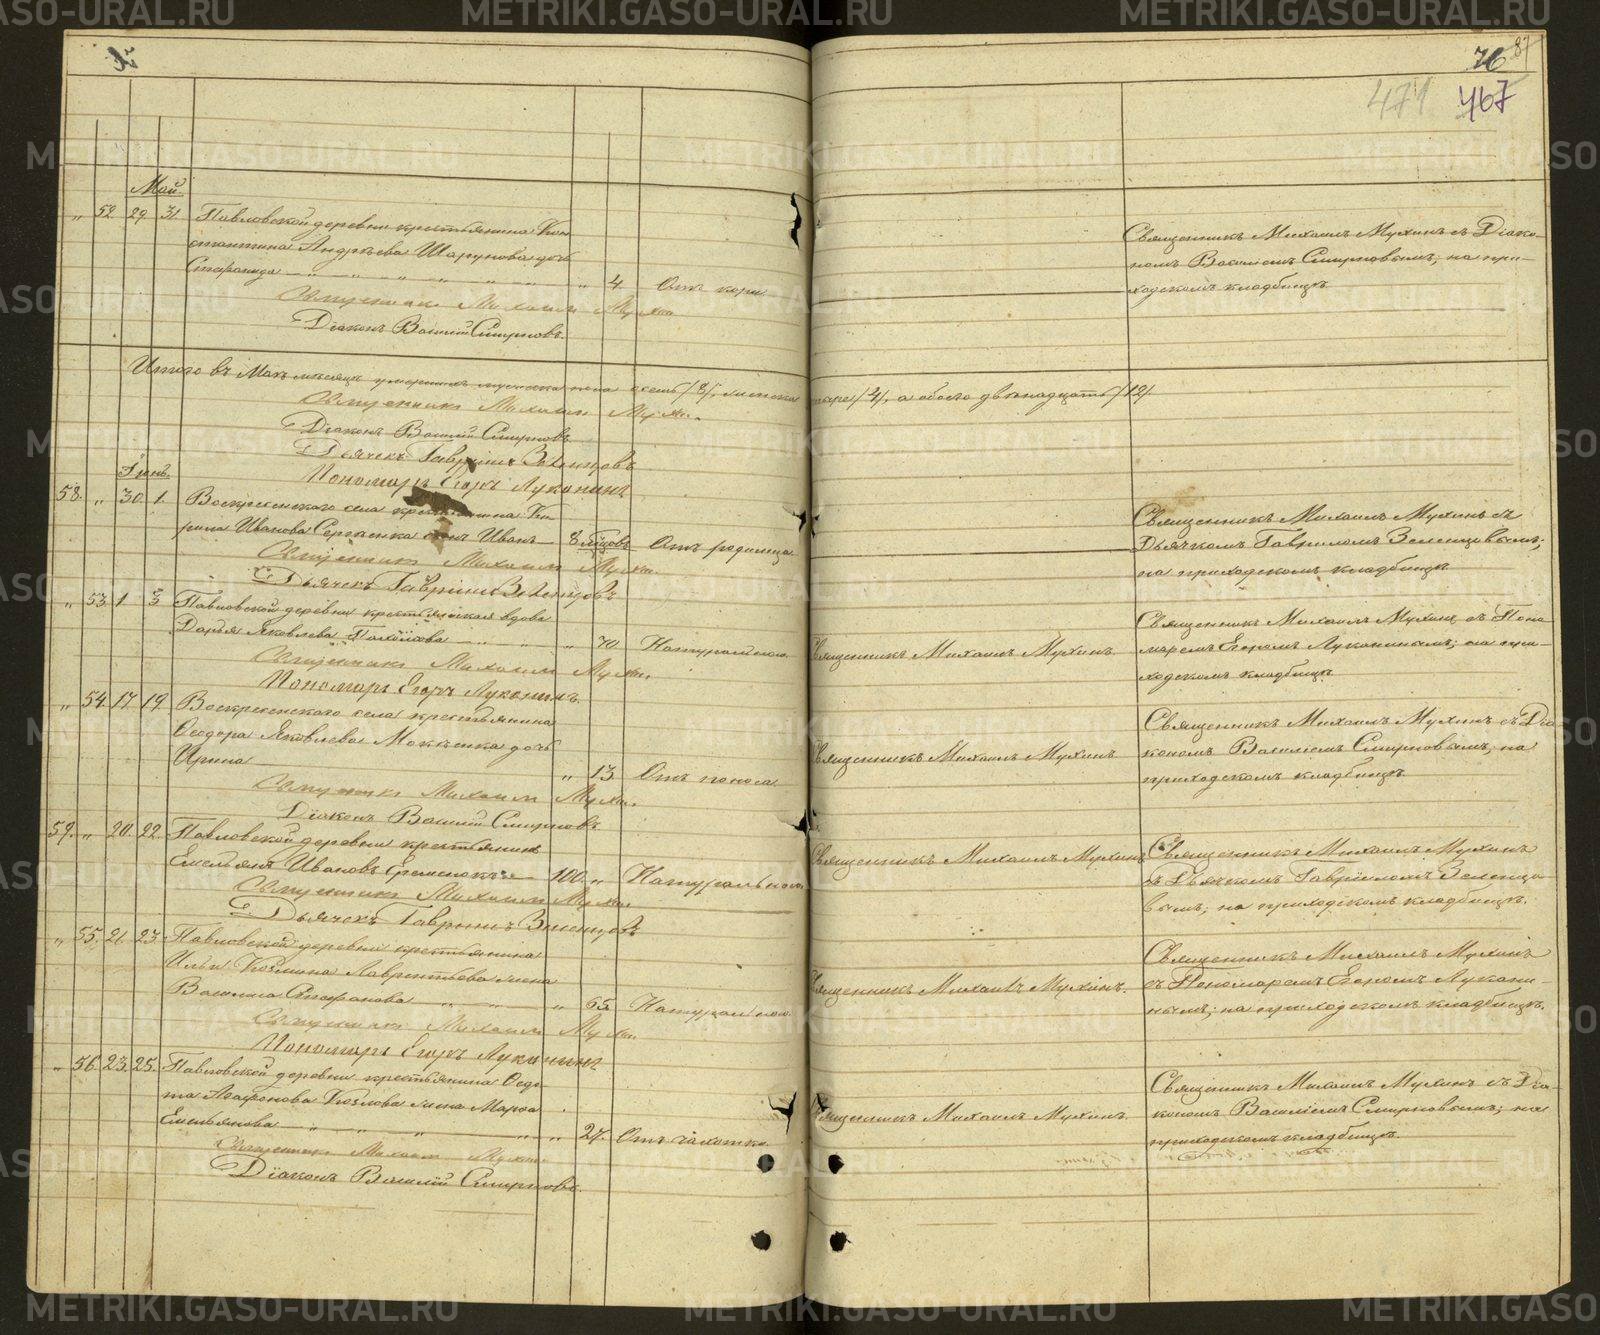 METRIKI.GASO-URAL.RU
76 87
471 467
Май.
„ 52 29 31. Павловской деревни крестьянина Кон-
стантина Андреева Шарунова дочь
Степанида „ „ „ „ „ „ 4 Отъ кори
Священникъ Михаилъ Мухинъ
Діаконъ Василій Смирновъ.
Священникъ Михаилъ Мухинъ съ Діако-
номъ Василіемъ Смирновымъ; на при-
ходскомъ кладбищѣ
Итого въ Маѣ мѣсяцѣ умершихъ мужеска пола осемь /8/, женска
четыре /4/, а обоего двѣнадцать /12/.
Священникъ Михаилъ Мухинъ.
Діаконъ Василій Смирновъ
Дьячекъ Гавріилъ Зеленцовъ
Пономарь Егоръ Луканинъ
Іюнь.
58. „ 30. 1. Воскресенскаго села крестьянина Ки-
рила Иванова Сергѣенка сынъ Иванъ 8 мѣсяцовъ Отъ родимца
Священникъ Михаилъ Мухинъ.
Дьячекъ Гавріилъ Зеленцовъ
Священникъ Михаилъ Мухинъ съ
Дьячкомъ Гавріиломъ Зеленцовымъ;
на приходскомъ кладбищѣ
„ 53. 1 3 Павловской деревни крестьянская вдова
Дарья Яковлева „ „ 70 Натурально
Священникъ Михаилъ Мухинъ.
Пономарь Егоръ Луканинъ.
Священникъ Михаилъ Мухинъ
Священникъ Михаилъ Мухинъ съ Поно-
маремъ Егоромъ Луканинымъ; на при-
ходскомъ кладбищѣ
„ 54. 17. 19. Воскресенскаго села крестьянина
Ѳеодора Яковлева Мокѣенка дочь
Ирина „ 13. Отъ поноса
Священникъ Михаилъ Мухинъ.
Діаконъ Василій Смирновъ
Священникъ Михаилъ Мухинъ
Священникъ Михаилъ Мухинъ съ Діа-
кономъ Василіемъ Смирновымъ; на
приходскомъ кладбищѣ
59. „ 20. 22. Павловской деревни крестьянинъ
Емельянъ Ивановъ Еременокъ 100 „ Натурально
Священникъ Михаилъ Мухинъ.
Дьячекъ Гавріилъ Зеленцовъ
Священникъ Михаилъ Мухинъ
Священникъ Михаилъ Мухинъ
съ Дьячкомъ Гавріиломъ Зеленцо-
вымъ; на приходскомъ кладбищѣ.
„ 55. 21. 23. Павловской деревни крестьянина
Ильи Козмина Лаврентьева жена
Василиса Стефанова „ „ „ 65. Натурально.
Священникъ Михаилъ Мухинъ.
Пономарь Егоръ Луканинъ
Священникъ Михаилъ Мухинъ.
Священникъ Михаилъ Мухинъ
съ Пономаремъ Егоромъ Лукани-
нымъ; на приходскомъ кладбищѣ.
„ 56. 23. 25. Павловской деревни крестьянина Ѳедо-
та Агафонова Козлова жена Марѳа
Емельянова „ „ „ „ „ 27. Отъ чахотки.
Священникъ Михаилъ Мухинъ.
Діаконъ Василій Смирновъ.
Священникъ Михаилъ Мухинъ
Священникъ Михаилъ Мухинъ съ Діа-
кономъ Василіемъ Смирновымъ; на
приходскомъ кладбищѣ.